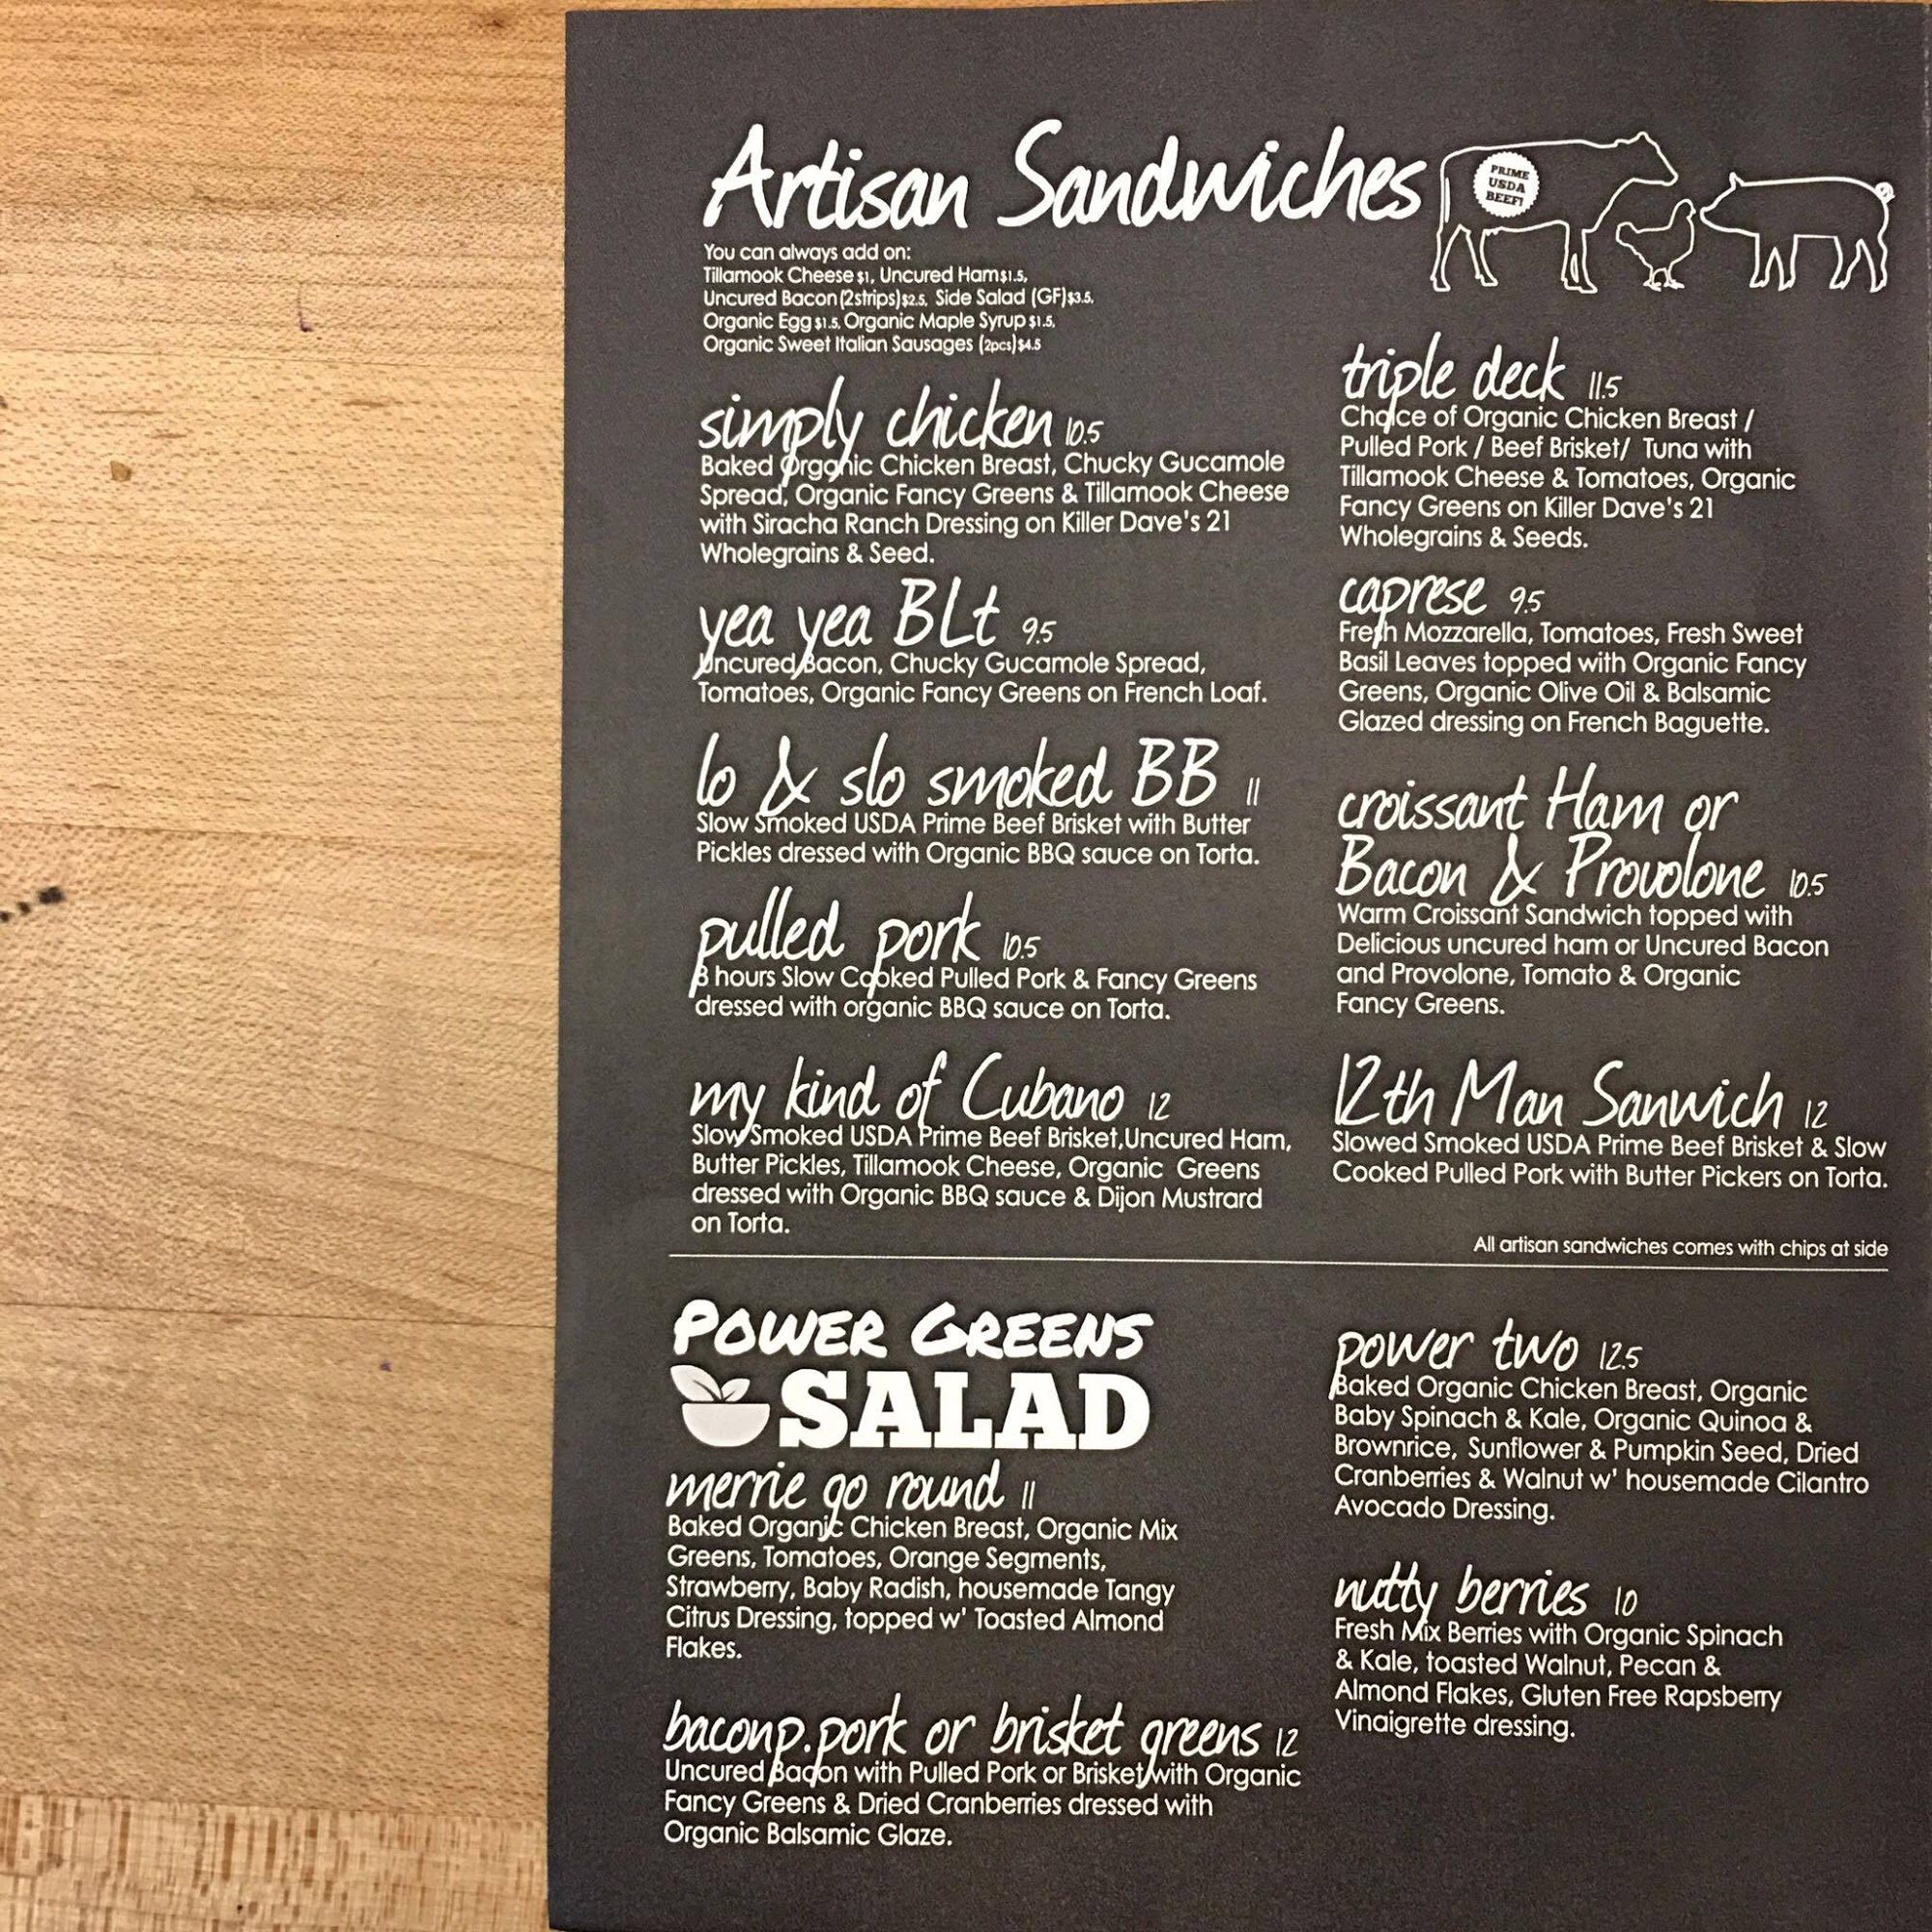 Artisan Sandwiches
PRIME
USDA
BEEF!
You can always add on:
Tillamook Cheese $1, Uncured Ham $1.5,
Uncured Bacon (2strips) $2.5, Side Salad (GF) $3.5,
Organic Egg $1.5, Organic Maple Syrup $1.5,
Organic Sweet Italian Sausages (2pcs) $4.5
simply chicken 10.5
Baked Organic Chicken Breast, Chucky Gucamole
Spread, Organic Fancy Greens & Tillamook Cheese
with Siracha Ranch Dressing on Killer Dave's 21
Wholegrains & Seed.
yea yea BLt 9.5
Uncured Bacon, Chucky Gucamole Spread,
Tomatoes, Organic Fancy Greens on French Loaf.
lo & slo smoked BB 11
Slow Smoked USDA Prime Beef Brisket with Butter
Pickles dressed with Organic BBQ sauce on Torta.
pulled pork 10.5
8 hours Slow Cooked Pulled Pork & Fancy Greens
dressed with organic BBQ sauce on Torta.
my kind of Cubano 12
Slow Smoked USDA Prime Beef Brisket,Uncured Ham,
Butter Pickles, Tillamook Cheese, Organic Greens
dressed with Organic BBQ sauce & Dijon Mustrard
on Torta.
triple deck 11.5
Choice of Organic Chicken Breast /
Pulled Pork / Beef Brisket/ Tuna with
Tillamook Cheese & Tomatoes, Organic
Fancy Greens on Killer Dave's 21
Wholegrains & Seeds.
caprese 9.5
Fresh Mozzarella, Tomatoes, Fresh Sweet
Basil Leaves topped with Organic Fancy
Greens, Organic Olive Oil & Balsamic
Glazed dressing on French Baguette.
croissant Ham or
Bacon & Provolone 10.5
Warm Croissant Sandwich topped with
Delicious uncured ham or Uncured Bacon
and Provolone, Tomato & Organic
Fancy Greens.
12th Man Sanwich 12
Slowed Smoked USDA Prime Beef Brisket & Slow
Cooked Pulled Pork with Butter Pickers on Torta.
All artisan sandwiches comes with chips at side
POWER GREENS
SALAD
merrie go round 11
Baked Organic Chicken Breast, Organic Mix
Greens, Tomatoes, Orange Segments,
Strawberry, Baby Radish, housemade Tangy
Citrus Dressing, topped w' Toasted Almond
Flakes.
baconp.pork or brisket greens 12
Uncured Bacon with Pulled Pork or Brisket with Organic
Fancy Greens & Dried Cranberries dressed with
Organic Balsamic Glaze.
power two 12.5
Baked Organic Chicken Breast, Organic
Baby Spinach & Kale, Organic Quinoa &
Brownrice, Sunflower & Pumpkin Seed, Dried
Cranberries & Walnut w' housemade Cilantro
Avocado Dressing.
nutty berries 10
Fresh Mix Berries with Organic Spinach
& Kale, toasted Walnut, Pecan &
Almond Flakes, Gluten Free Rapsberry
Vinaigrette dressing.